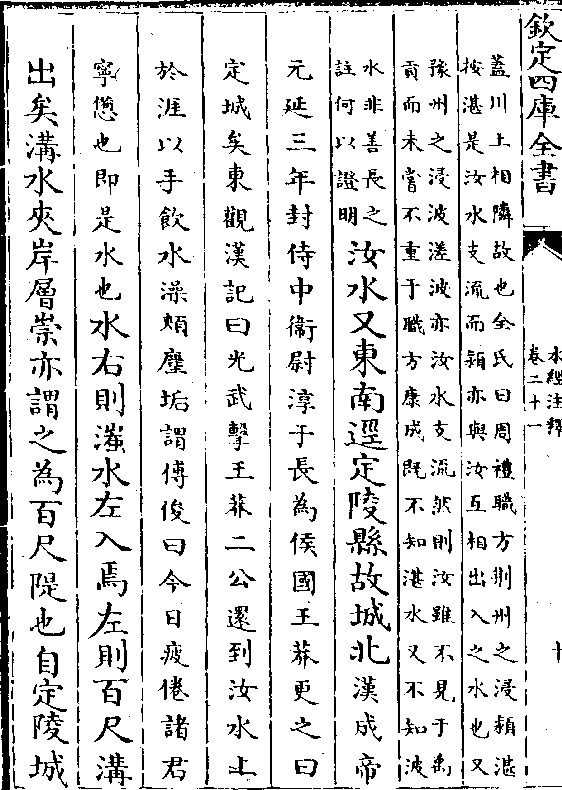 欽定四庫全書
水經注釋
卷二十一
十
蓋川上相隣故也全氏曰周禮職方荆州之浸潁湛
按湛是汝水支流而潁亦與汝互相出入之水也又
豫州之浸波溠波亦汝水支流然則汝雖不見于禹
貢而未嘗不重于職方康成既不知湛水又不知波
水非善長之
註何以證明
汝水又東南逕定陵縣故城北漢成帝
元延三年封侍中衛尉淳于長為侯國王莽更之曰
定城矣東觀漢記曰光武擊王莽二公還到汝水上
於涯以手飲水澡頰塵垢謂傅俊曰今日疲倦諸君
寧憊也即是水也水右則滍水左入焉左則百尺溝
出矣溝水夾岸層崇亦謂之為百尺隄也自定陵城